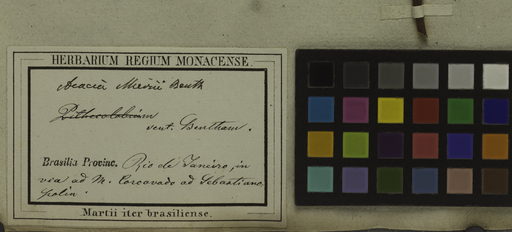 HERBARIUM REGIUM MONACENSE.
Acacia Miersii Benth
Pithecolobium
sent. Bentham.
Brasilia Provinc. Rio de Janeiro, in
via ad M. Corcovado ad Sebastiano
polin.
Martii iter brasiliense.